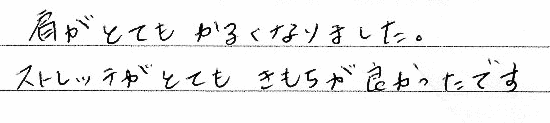 肩がとても かるくなりました。
ストレッチがとても きもちが良かったです